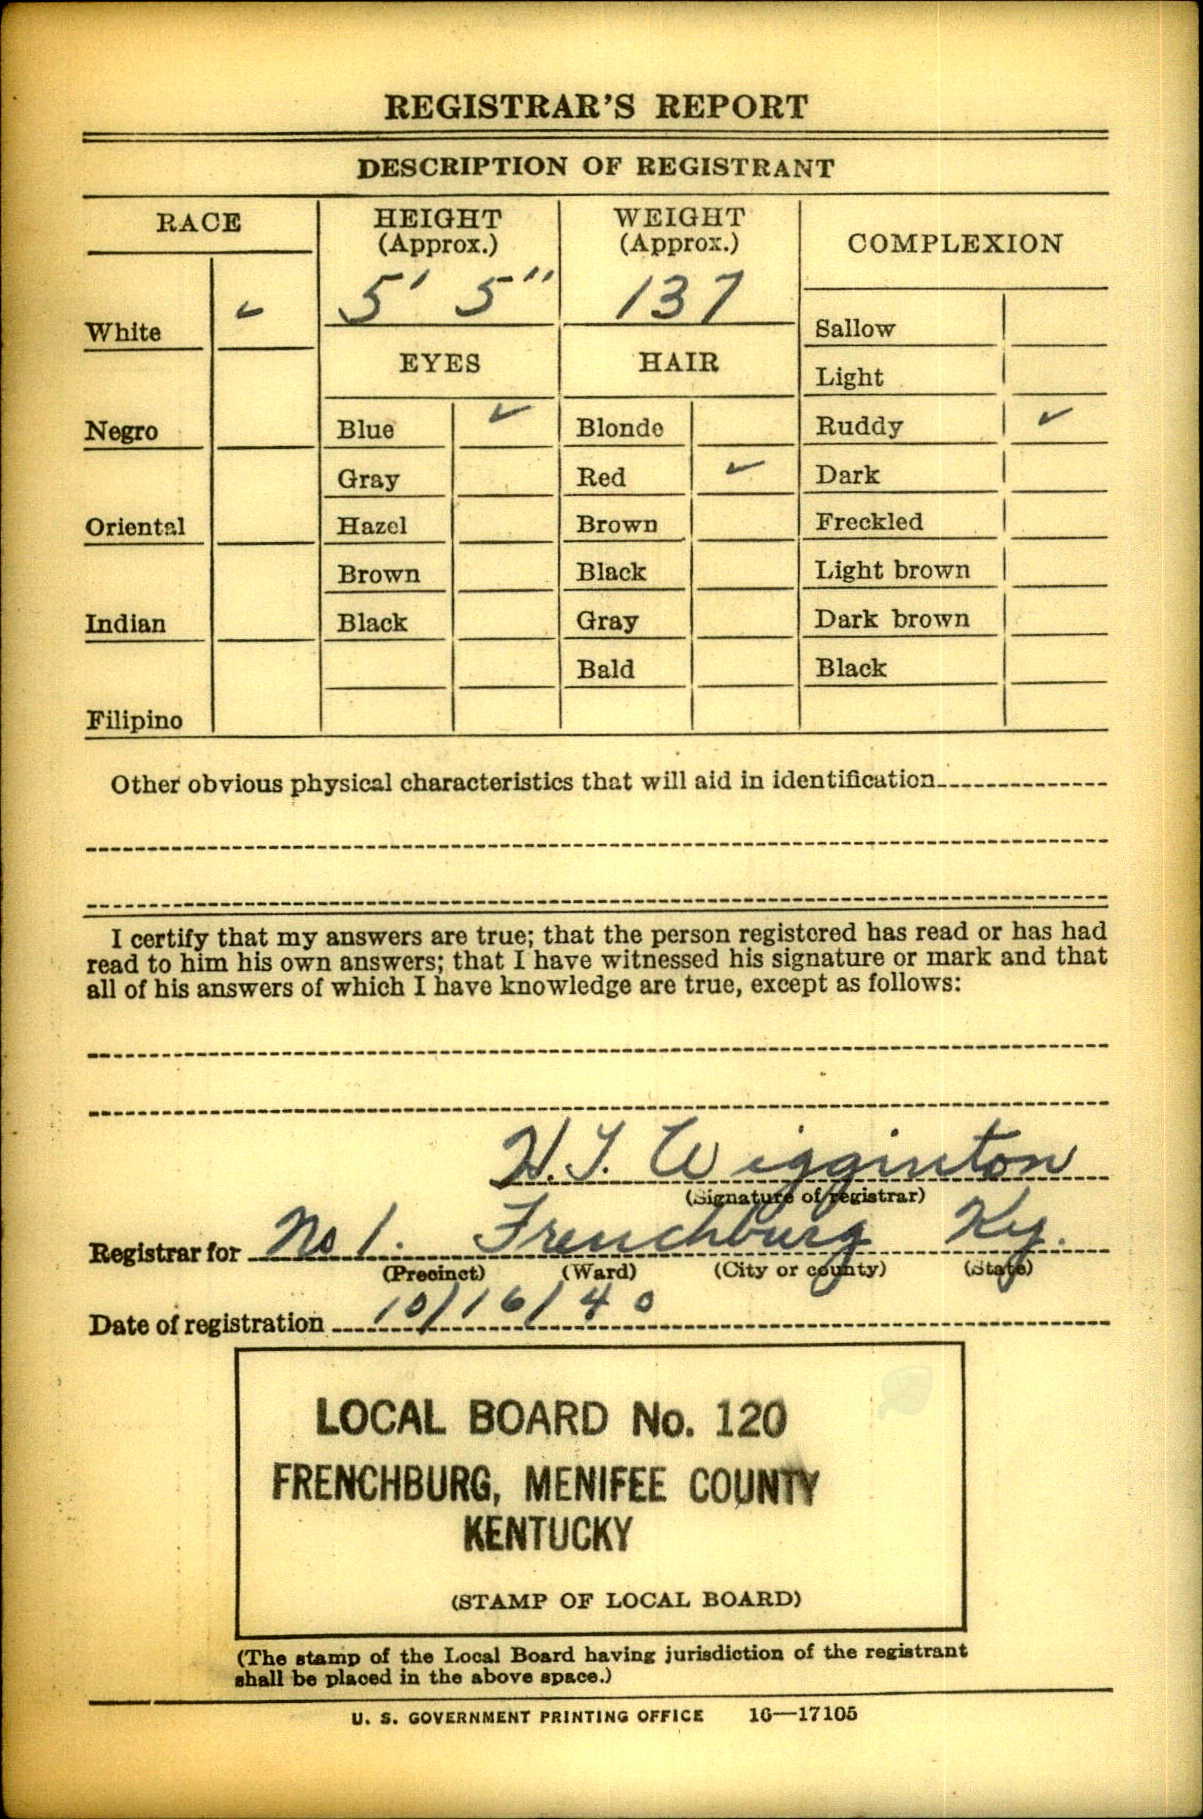 REGISTRAR'S REPORT
DESCRIPTION OF REGISTRANT
RACE
HEIGHT
(Approx.)
WEIGHT
(Approx.)
COMPLEXION
5' 5"
137
White ✓
Sallow
EYES
HAIR
Light
Negro
Blue ✓
Blonde
Ruddy ✓
Gray
Red ✓
Dark
Oriental
Hazel
Brown
Freckled
Brown
Black
Light brown
Indian
Black
Gray
Dark brown
Bald
Black
Filipino
Other obvious physical characteristics that will aid in identification
I certify that my answers are true; that the person registered has read or has had
read to him his own answers; that I have witnessed his signature or mark and that
all of his answers of which I have knowledge are true, except as follows:
H.T. Wigginton
(Signature of registrar)
Registrar for No 1. Frenchburg Ky.
(Precinct) (Ward) (City or county) (State)
Date of registration 10/16/40
LOCAL BOARD No. 120
FRENCHBURG, MENIFEE COUNTY
KENTUCKY
(STAMP OF LOCAL BOARD)
(The stamp of the Local Board having jurisdiction of the registrant
shall be placed in the above space.)
U. S. GOVERNMENT PRINTING OFFICE 16—17105